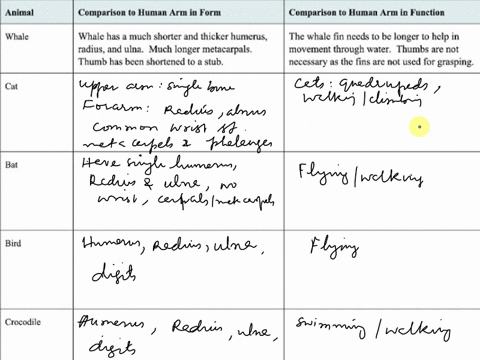 Animal Comparison to Human Arm in Form Comparison to Human Arm in Function
Whale
Whale has a much shorter and thicker humerus,
radius, and ulna. Much longer metacarpals.
Thumb has been shortened to a stub.
The whale fin needs to be longer to help in
movement through water. Thumbs are not
necessary as the fins are not used for grasping.
Cat
Upper arm : single bone
Forarm : Radius, ulnus
Common wrist
metacarpels & phalenges
Cats : quadrupeds,
walking / climbing
Bat
Have single humerus,
Radius & ulna, no
wrist, carpals / metacarpels
Flying / walking
Bird
Humerus, Radius, ulna,
digits
Flying
Crocodile
Humerus, Radius, ulna,
digits
Swimming / walking